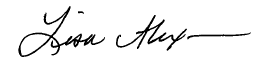 Lisa Alex